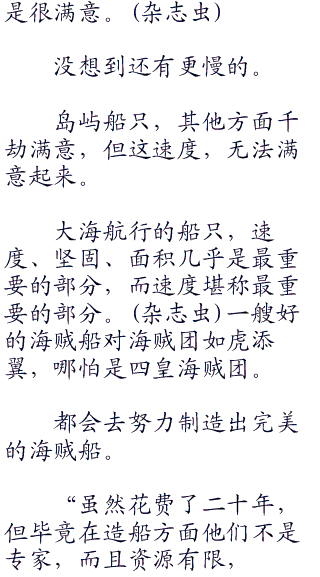 是很满意。(杂志虫)
没想到还有更慢的。
岛屿船只，其他方面千
劫满意，但这速度，无法满
意起来。
大海航行的船只，速
度、坚固、面积几乎是最重
要的部分，而速度堪称最重
要的部分。(杂志虫)一艘好
的海贼船对海贼团如虎添
翼，哪怕是四皇海贼团。
都会去努力制造出完美
的海贼船。
“虽然花费了二十年，
但毕竟在造船方面他们不是
专家，而且资源有限，